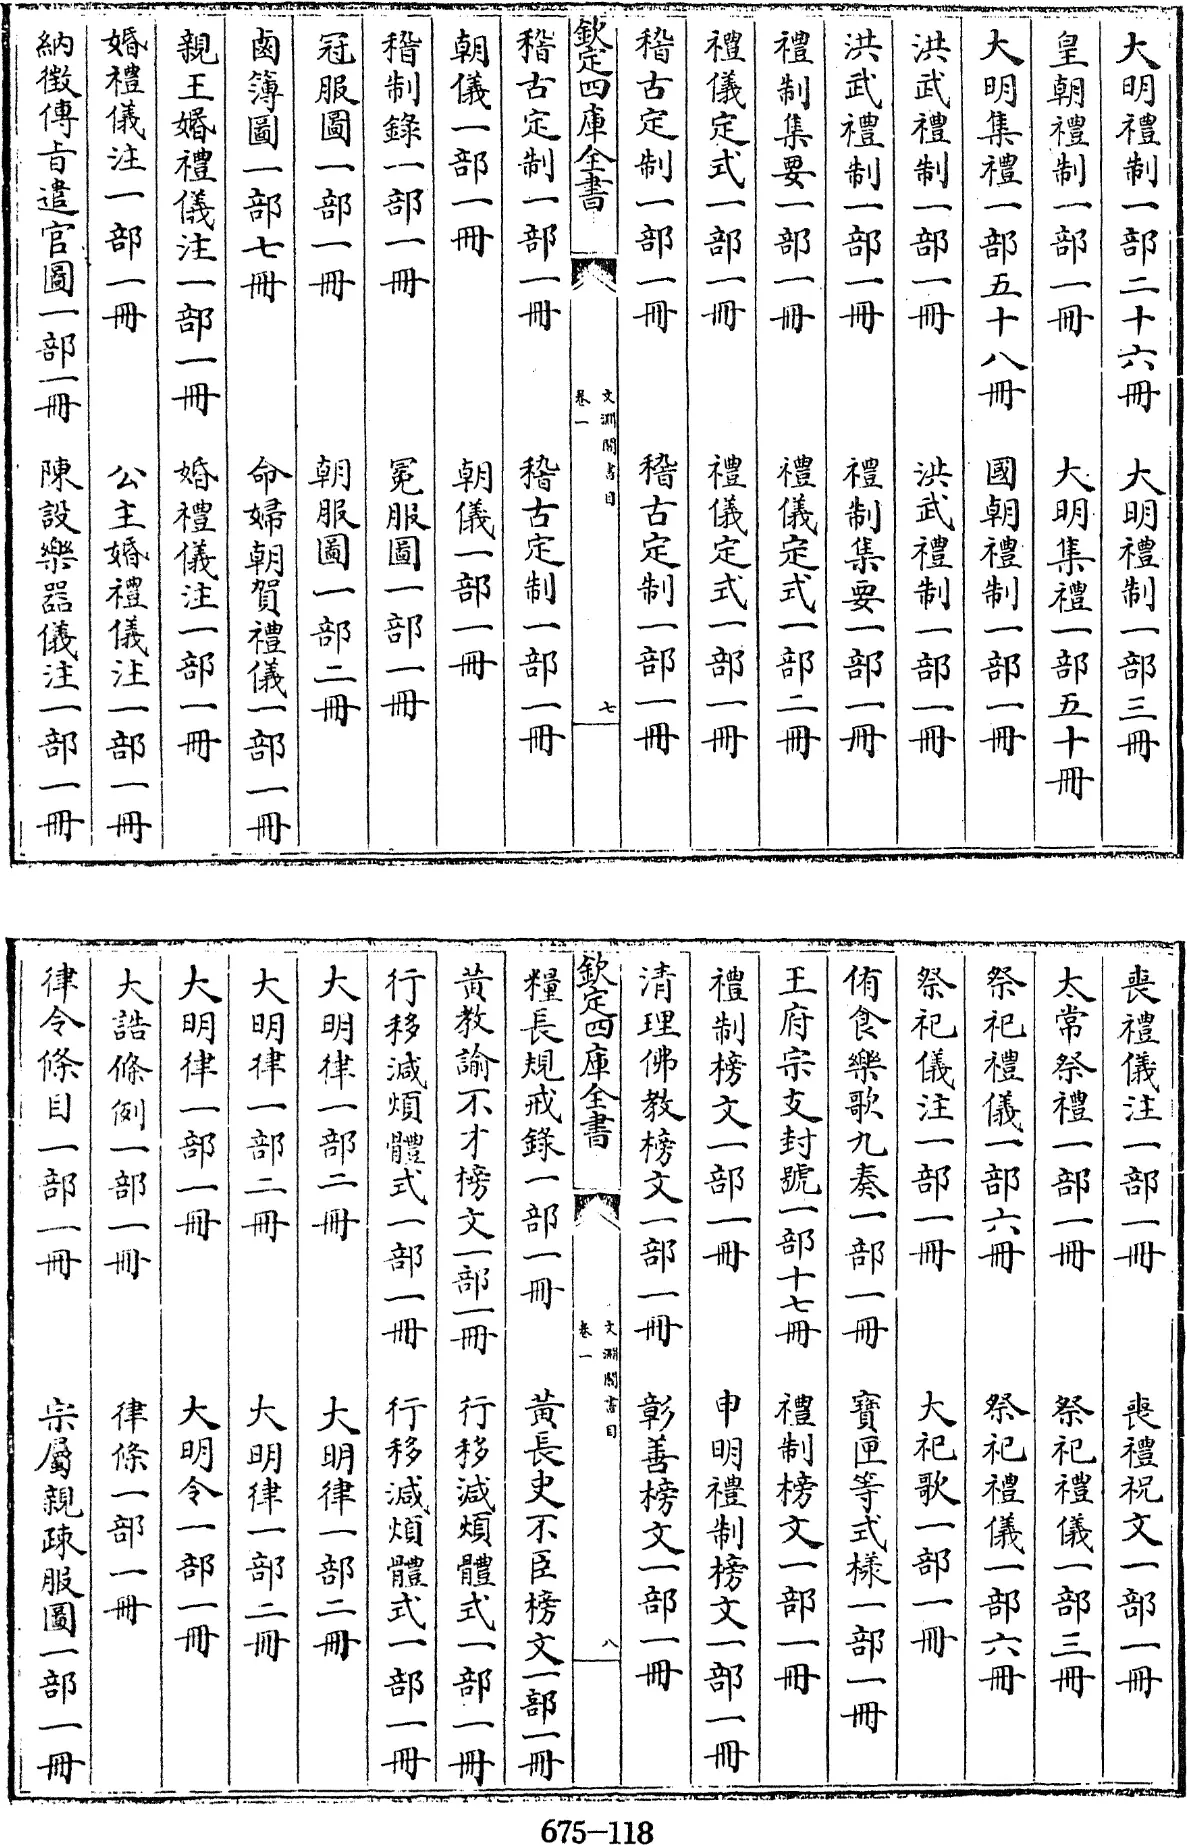 大明禮制一部二十六冊　大明禮制一部三冊
皇朝禮制一部一冊　大明集禮一部五十冊
大明集禮一部五十八冊　國朝禮制一部一冊
洪武禮制一部一冊　洪武禮制一部一冊
洪武禮制一部一冊　禮制集要一部一冊
禮制集要一部一冊　禮儀定式一部二冊
禮儀定式一部一冊　禮儀定式一部一冊
稽古定制一部一冊　稽古定制一部一冊
欽定四庫全書
文淵閣書目
卷一
七
稽古定制一部一冊　稽古定制一部一冊
朝儀一部一冊　朝儀一部一冊
稽制錄一部一冊　冕服圖一部一冊
冠服圖一部一冊　朝服圖一部二冊
鹵簿圖一部七冊　命婦朝賀禮儀一部一冊
親王婚禮儀注一部一冊　婚禮儀注一部一冊
婚禮儀注一部一冊　公主婚禮儀注一部一冊
納徵傳旨遣官圖一部一冊　陳設樂器儀注一部一冊
喪禮儀注一部一冊　喪禮祝文一部一冊
太常祭禮一部一冊　祭祀禮儀一部三冊
祭祀禮儀一部六冊　祭祀禮儀一部六冊
祭祀儀注一部一冊　大祀歌一部一冊
侑食樂歌九奏一部一冊　寶匣等式樣一部一冊
王府宗支封號一部十七冊　禮制榜文一部一冊
禮制榜文一部一冊　申明禮制榜文一部一冊
清理佛教榜文一部一冊　彰善榜文一部一冊
欽定四庫全書
文淵閣書目
卷一
八
糧長規戒錄一部一冊　黃長史不臣榜文一部一冊
黃教諭不才榜文一部一冊　行移減煩體式一部一冊
行移減煩體式一部一冊　行移減煩體式一部一冊
大明律一部二冊　大明律一部二冊
大明律一部二冊　大明律一部二冊
大明律一部一冊　大明令一部一冊
大誥條例一部一冊　律條一部一冊
律令條目一部一冊　宗屬親疎服圖一部一冊
675-118